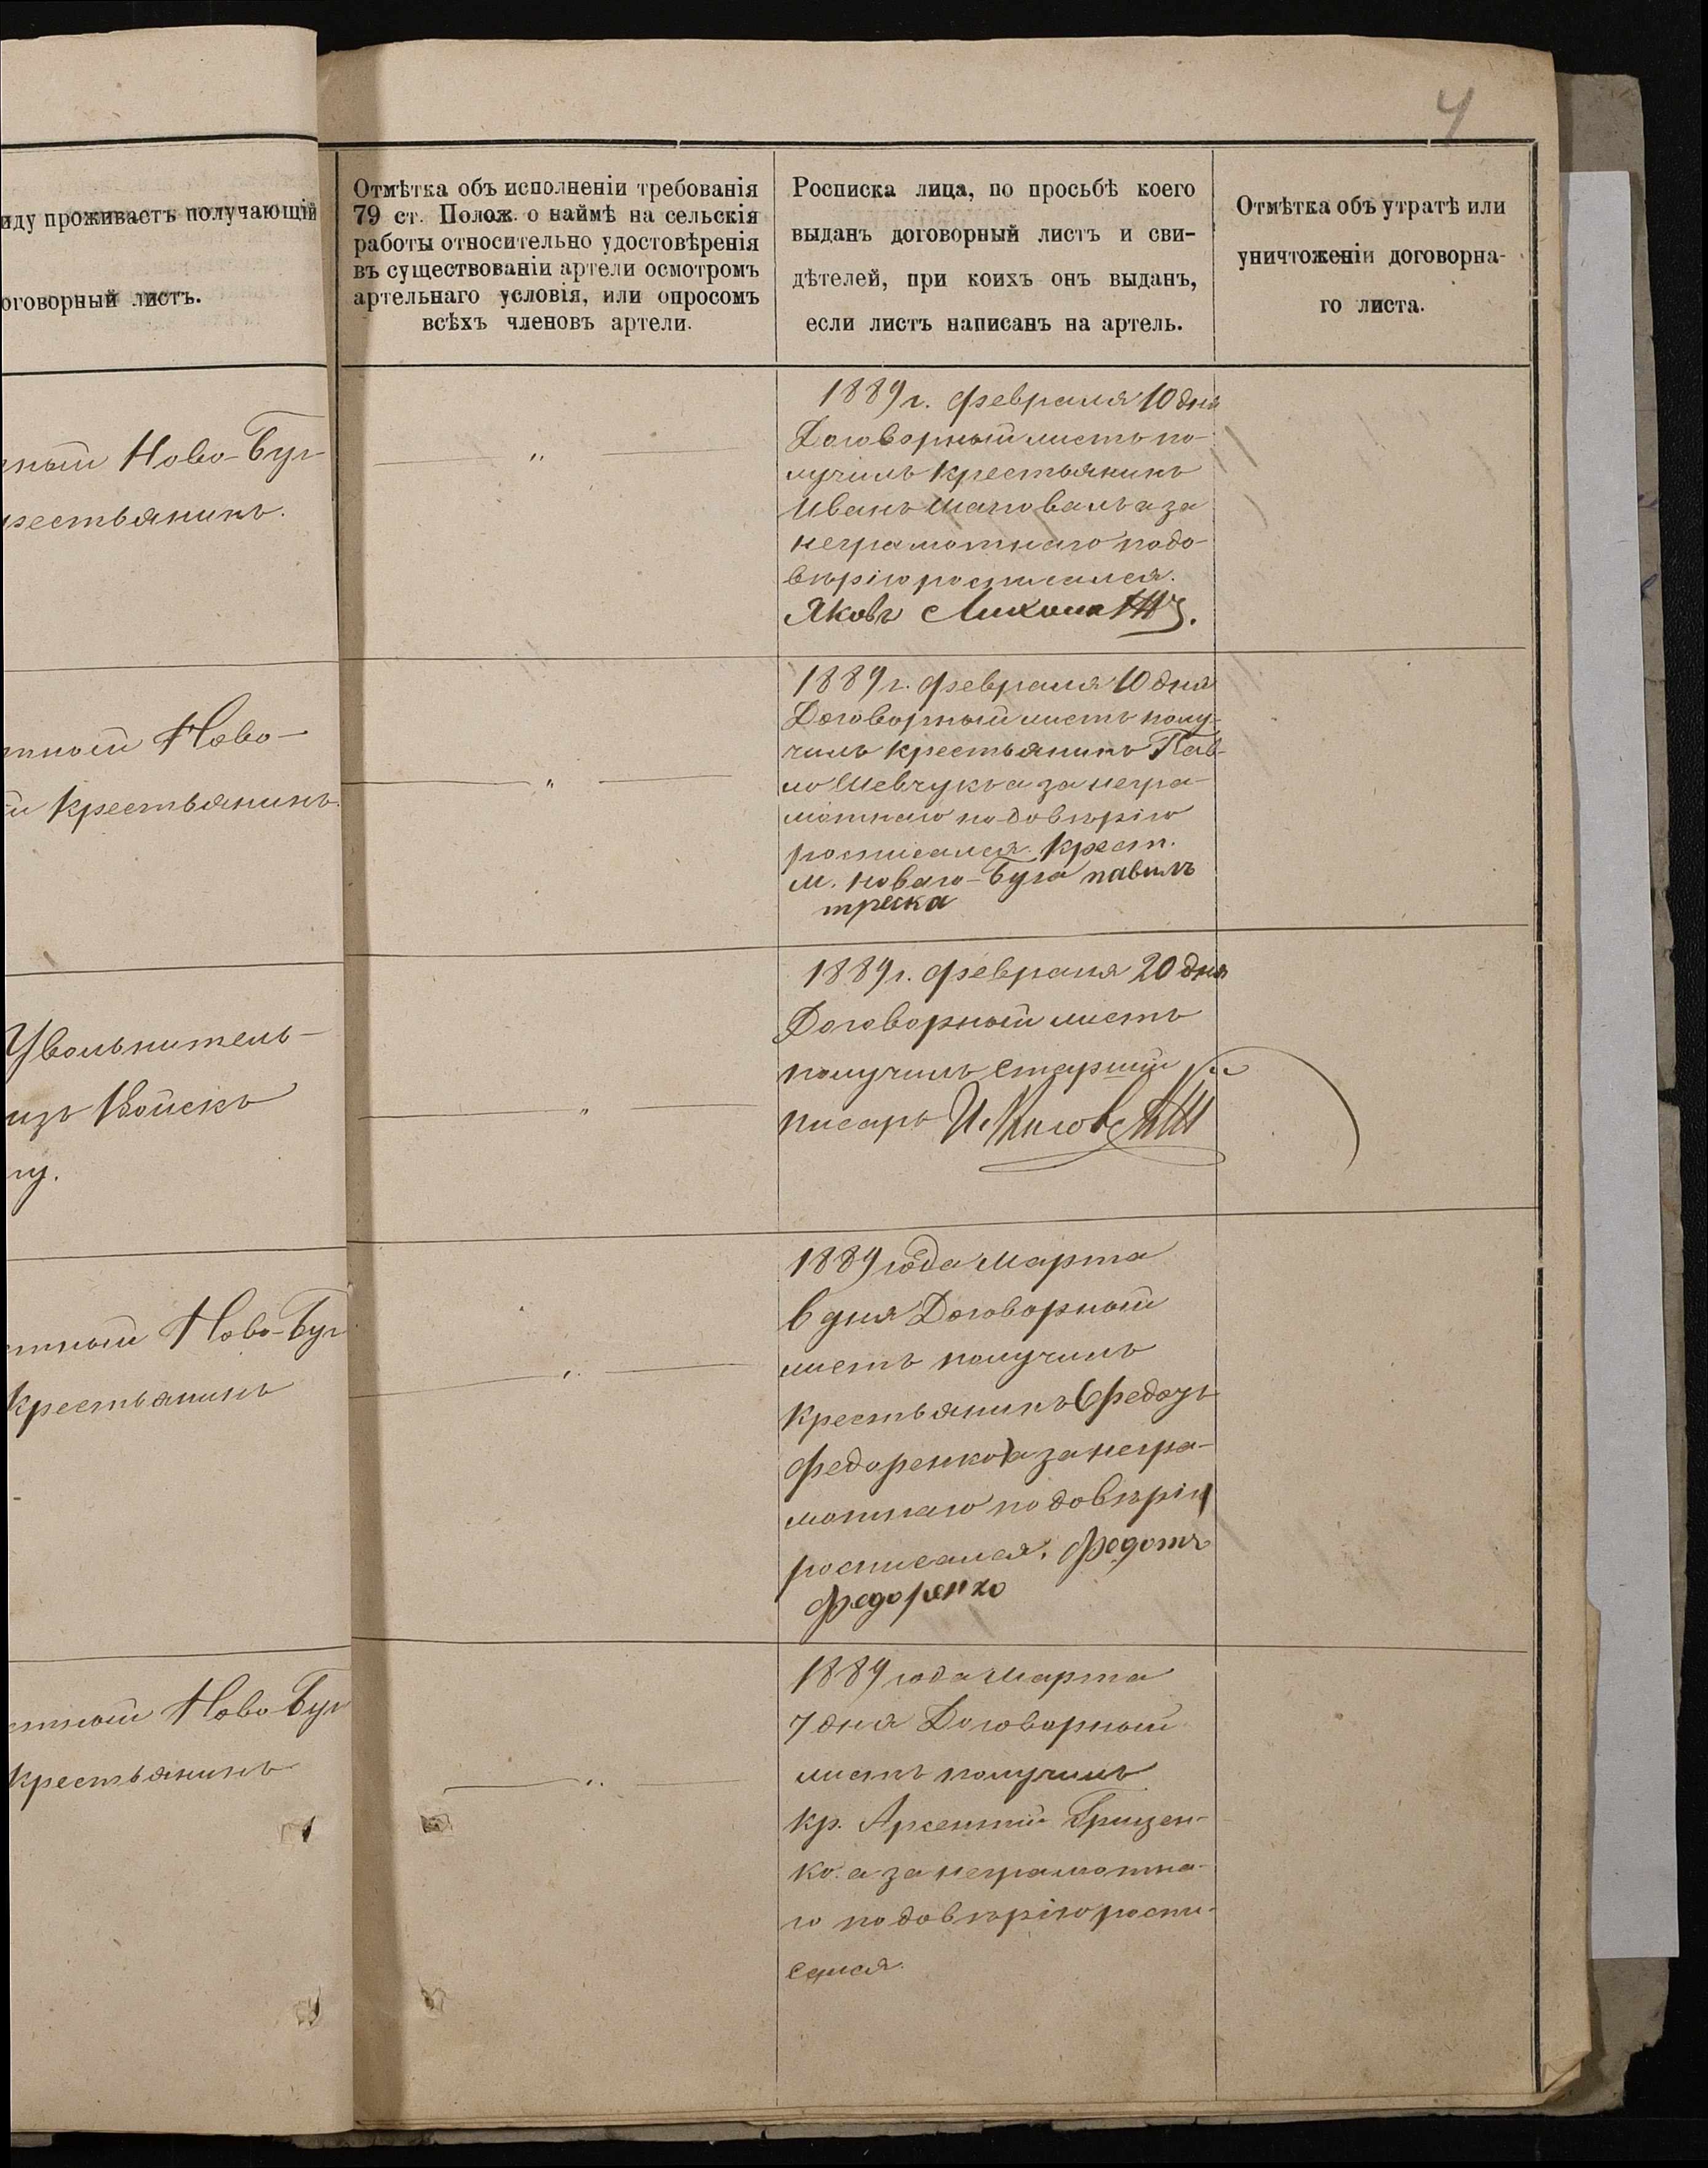 4
иду проживаетъ получающій
оговорный листъ.
Отмѣтка объ исполненіи требованія
79 ст. Полож. о наймѣ на сельскія
работы относительно удостовѣренія
въ существованіи артели осмотромъ
артельнаго условія, или опросомъ
всѣхъ членовъ артели.
Росписка лица, по просьбѣ коего
выданъ договорный листъ и сви-
дѣтелей, при коихъ онъ выданъ,
если листъ написанъ на артель.
Отмѣтка объ утратѣ или
уничтоженіи договорна-
го листа.
ный Ново-Буг-
рестьянинъ.
— " —
1889 г. февраля 10 дня
Договорный листъ по-
лучилъ крестьянинъ
Иванъ Шаповалъ а за
неграмотнаго по до-
вѣрію росписался.
Яковъ
тный Ново-
й крестьянинъ.
— " —
1889 г. февраля 10 дня
Договорный листъ полу-
чилъ крестьянинъ Пав-
ло Шевчукъ а за негра-
мотнаго по довѣрію
росписался. Крест.
м. Новаго-Буга павилъ
треска
Увольнитель-
изъ Войскъ
му.
— " —
1889 г. февраля 20 дня
Договорный листъ
получилъ Старшій
писарь И.
тный Ново-Буг
крестьянинъ
— " —
1889 года Марта
6 дня Договорный
листъ получилъ
крестьянинъ (Федотъ
Федоренко) а за негра-
мотнаго по довѣрію
росписался. Федотъ
Федоренко
тный Ново-Буг
крестьянинъ
— " —
1889 года Марта
7 дня Договорный
листъ получилъ
кр. Арсентій Грицен-
ко. а за неграмотна-
го по довѣрію роспи-
сался.